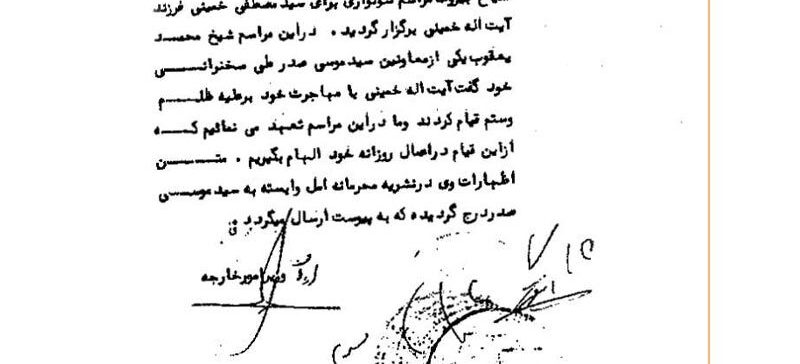 مراسم سوگواری برای سید مصطفی خمینی فرزند
آیت اله خمینی برگزار گردید . دراین مراسم شیخ محمد
یعقوب یکی ازمعاونین سیدموسی صدر طی سخنرانی
خود گفت آیت اله خمینی با مهاجرت خود برعلیه ظلم
وستم قیام کردند وما دراین مراسم تعهد می نمائیم که
ازاین قیام دراعمال روزانه خود الهام بگیریم . متن
اظهارات وی درنشریه محرمانه امل وابسته به سیدموسی
صدردرج گردیده که به پیوست ارسال میگردد
وزیرامورخارجه